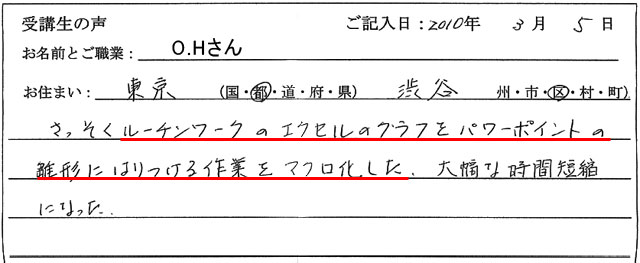 受講生の声 ご記入日：2010年 3月 5日
お名前とご職業： O.Hさん
お住まい： 東京 （国・都・道・府・県） 渋谷 州・市・区・村・町）
さっそくルーチンワークのエクセルのグラフをパワーポイントの
雛形にはりつける作業をマクロ化した．大幅な時間短縮
になった．